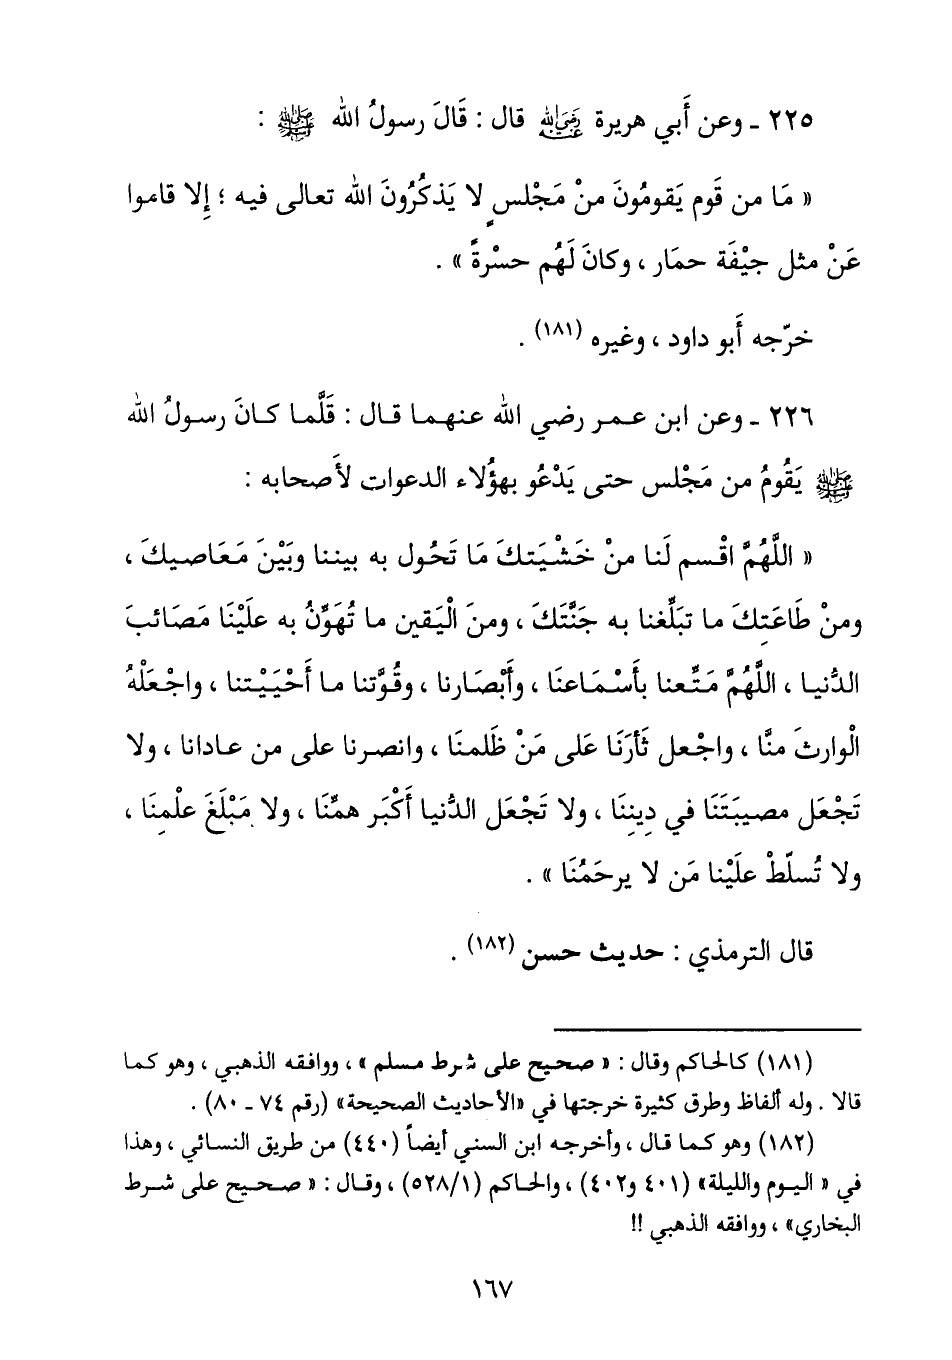 ٢٢٥ ـ وعن أَبي هريرة رضي الله عنه قال : قَالَ رسولُ الله ﷺ :
« مَا من قَوم يَقومُونَ منْ مَجْلسٍ لا يَذكُرُونَ الله تعالى فيه ؛ إِلا قاموا
عَنْ مثل جيْفَة حمَار ، وكانَ لَهُم حسْرةً » .
خرّجه أَبو داود ، وغيره (١٨١) .
٢٢٦ ـ وعن ابن عمر رضي الله عنهما قال : قَلَّما كانَ رسولُ الله
ﷺ يَقُومُ من مَجْلس حتى يَدْعُو بهؤُلاء الدعوات لأَصحابه :
« اللَّهُمَّ اقْسم لَنا منْ خَشْيَتكَ مَا تَحُول به بيننا وبَيْنَ مَعَاصيكَ ،
ومنْ طَاعَتِكَ ما تبَلِّغنا به جَنَّتَكَ ، ومنَ الْيَقين ما تُهَوِّنُ به علَيْنَا مَصَائبَ
الدُّنيا ، اللَّهُمَّ مَتِّعنا بأَسْمَاعنَا ، وأَبْصَارنا ، وقُوَّتنا ما أَحْيَيْتنا ، واجْعَلْهُ
الْوارثَ منَّا ، واجْعل ثَأرَنَا عَلى مَنْ ظَلمنَا ، وانصرنا على من عادانا ، ولا
تَجْعَل مصيبَتَنَا في دِيننَا ، ولا تَجْعَل الدُّنيا أَكْبَر همِّنَا ، ولا مَبْلَغَ علْمِنَا ،
ولا تُسلّطْ علَيْنا مَن لا يرحَمُنَا » .
قال الترمذي : حديث حسن (١٨٢) .
(١٨١) كالحاكم وقال : « صحيح على شرط مسلم » ، ووافقه الذهبي ، وهو كما
قالا . وله ألفاظ وطرق كثيرة خرجتها في «الأحاديث الصحيحة» (رقم ٧٤ ـ ٨٠) .
(١٨٢) وهو كما قال ، وأخرجه ابن السني أيضاً (٤٤٠) من طريق النسائي ، وهذا
في « اليوم والليلة» (٤٠١ و٤٠٢) ، والحاكم (٥٢٨/١) ، وقال : « صحيح على شرط
البخاري» ، ووافقه الذهبي !!
١٦٧